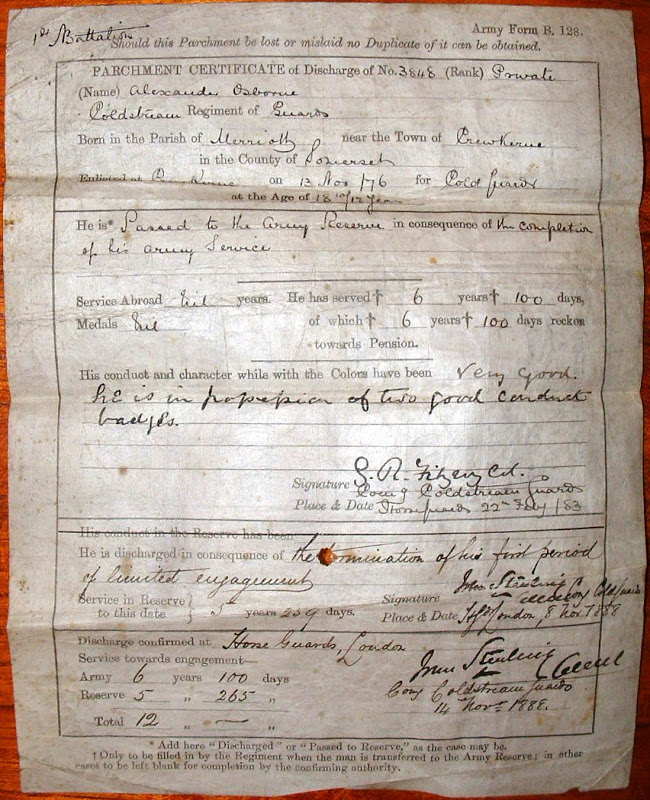 1st Battalion
Army Form B. 128.
Should this Parchment be lost or mislaid no Duplicate of it can be obtained.
PARCHMENT CERTIFICATE of Discharge of No. 3848 (Rank) Private
(Name) Alexander Osborne
Coldstream Regiment of Guards
Born in the Parish of Merriott near the Town of Crewkerne
in the County of Somerset
Enlisted at on 13 Nov /76 for Cold Guards
at the Age of 18 /12 Years
He is* Passed to the Army Reserve in consequence of the completion
of his army Service
Service Abroad Nil years. He has served† 6 years† 100 days,
Medals Nil of which† 6 years† 100 days reckon
towards Pension.
His conduct and character while with the Colors have been Very Good.
he is in possession of two good conduct
badges.
Signature
Comg Coldstream Guards
Place & Date Horse Guards 22nd Feby /83
His conduct in the Reserve has been
He is discharged in consequence of the termination of his first period
of limited engagement
Service in Reserve to this date } 5 years 259 days.
Signature
Place & Date London, 8 Nov. 1888
Discharge confirmed at Horse Guards, London
Service towards engagement—
Army 6 years 100 days
Reserve 5 „ 265 „
Total 12 „ — „
Comg Coldstream Guards
14 Novr 1888.
* Add here "Discharged" or "Passed to Reserve," as the case may be.
† Only to be filled in by the Regiment when the man is transferred to the Army Reserve; in other
cases to be left blank for completion by the confirming authority.